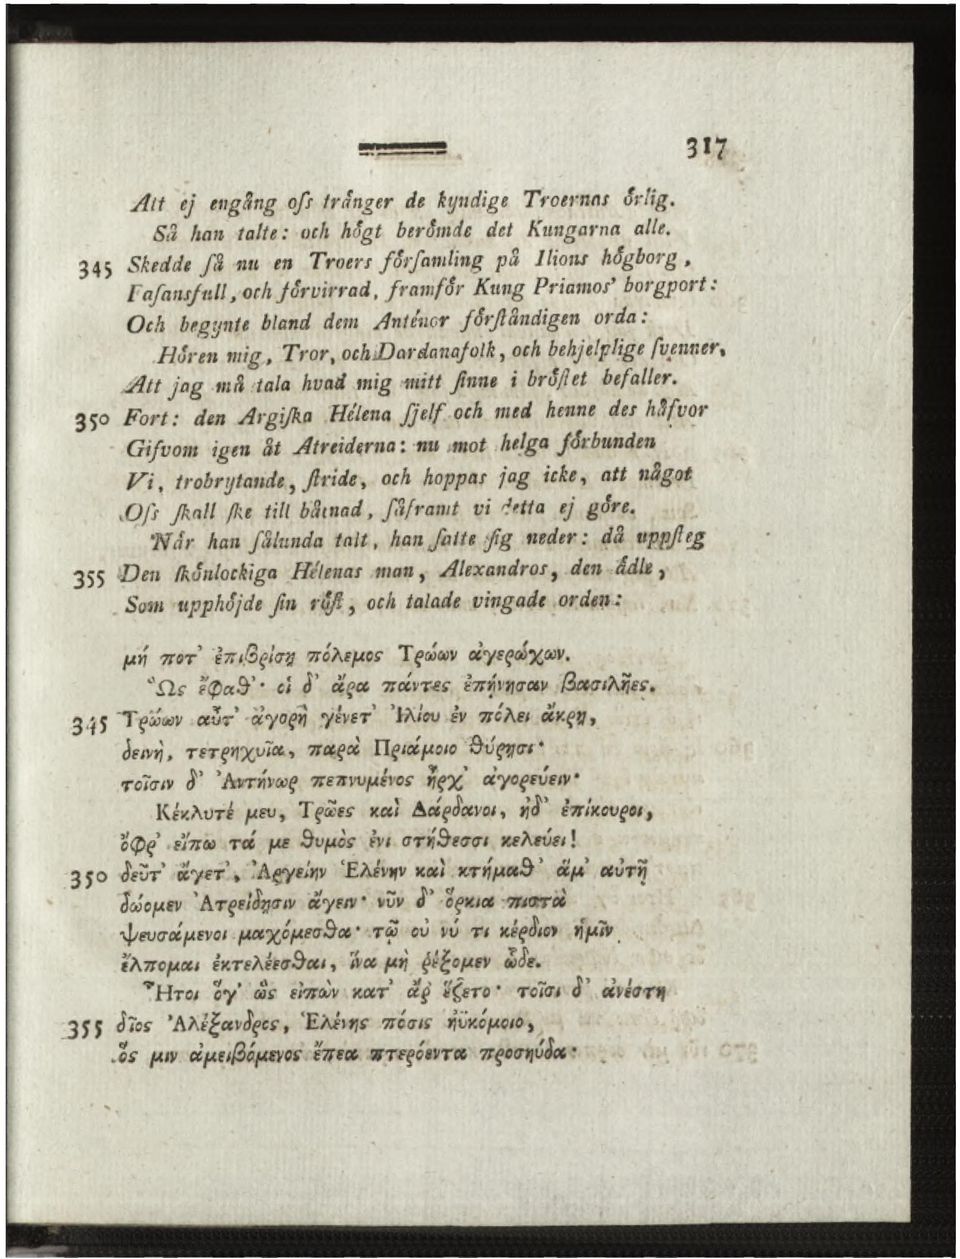 317
Att ej engång oſs trånger de kyndige Troernas örlig.
Så han talte: och högt berömde det Kungarna alle.
345 Skedde ſå nu en Troers förſamling på Ilions högborg,
Faſansfull, och förvirrad, framför Kung Priamos' borgport:
Och begynte bland dem Anténor förſtåndigen orda:
Hören mig, Tror, och Dardanafolk, och behjelplige ſvenner,
Att jag må tala hvad mig mitt ſinne i bröſtet befaller.
350 Fort: den Argiſka Hélena ſjelf och med henne des håfvor
Gifvom igen åt Atreiderna: nu mot helga förbunden
Vi, trobrytande, ſtride, och hoppas jag icke, att något
Oſs ſkall ſke till båtnad, ſåframt vi detta ej göre.
Når han ſålunda talt, han ſatte ſig neder: då uppſteg
355 Den ſkönlockiga Hélenas man, Alexandros, den ådle,
Som upphöjde ſin röſt, och talade vingade orden:
μή ποτ' ἐπιβρίσῃ πόλεμος Τρώων ἀγερώχων.
Ὣς ἔφαθ'· οἱ δ' ἄρα πάντες ἐπῄνησαν βασιλῆες.
345 Τρώων αὖτ' ἀγορὴ γένετ' Ἰλίου ἐν πόλει ἄκρῃ,
δεινὴ, τετρηχυῖα, παρὰ Πριάμοιο θύρῃσι·
τοῖσιν δ' Ἀντήνωρ πεπνυμένος ἦρχ' ἀγορεύειν·
Κέκλυτέ μευ, Τρῶες καὶ Δάρδανοι, ἠδ' ἐπίκουροι,
ὄφρ' εἴπω τά με θυμὸς ἐνι στήθεσσι κελεύει!
350 δεῦτ' ἄγετ', Ἀργείην Ἑλένην καὶ κτήμαθ' ἅμ' αὐτῇ
δώομεν Ἀτρείδῃσιν ἄγειν· νῦν δ' ὅρκια πιστὰ
ψευσάμενοι μαχόμεσθα· τῷ οὐ νύ τι κέρδιον ἡμῖν
ἔλπομαι ἐκτελέεσθαι, ἵνα μὴ ῥέξομεν ὧδε.
Ἤτοι ὅγ' ὣς εἰπὼν κατ' ἄρ ἕζετο· τοῖσι δ' ἀνέστη
355 δῖος Ἀλέξανδρος, Ἑλένης πόσις ἠϋκόμοιο,
ὅς μιν ἀμειβόμενος ἔπεα πτερόεντα προσηύδα·